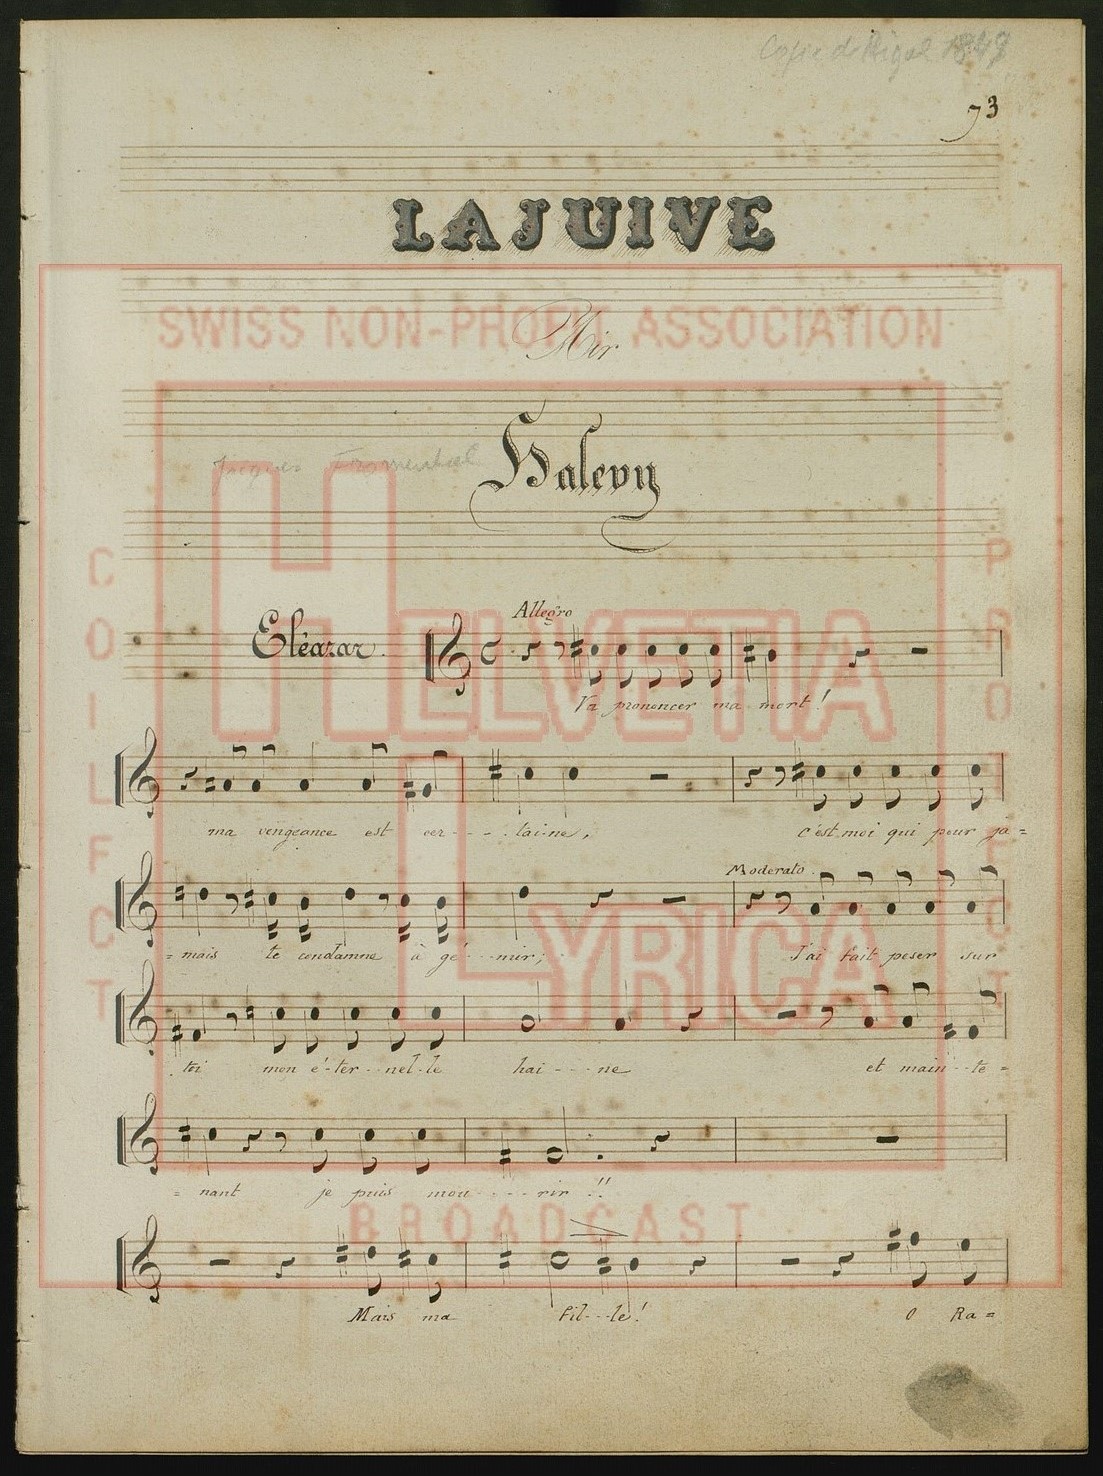 Copie de Rigal 1849
73
LA JUIVE
SWISS NON-PROFIT ASSOCIATION
Air
Jacques Fromenthal
Halevy
HELVETIA
LYRICA
BROADCAST
Eléazar.
Allegro
Va prononcer ma mort!
ma vengeance est cer - - - - tai-ne,
c'est moi qui pour ja =
Moderato
= mais te condamne à gé - - - mir;
J'ai fait peser sur
toi mon é-ter - - nel-le hai - - - ne
et main - - te =
= nant je puis mou - - - - rir !!
Mais ma fil - - - le!
O Ra =